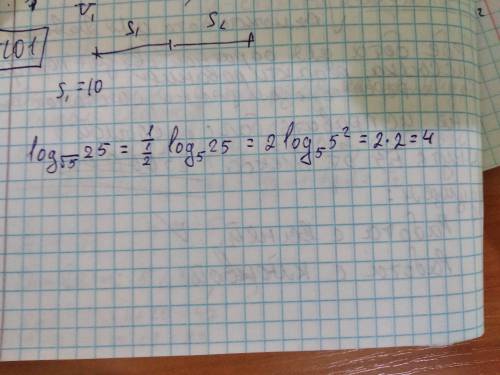 V₁
S₁ S₂
101
S₁ = 10
log_√5 25 = 1/(1/2) log₅ 25 = 2 log₅ 5² = 2·2 = 4